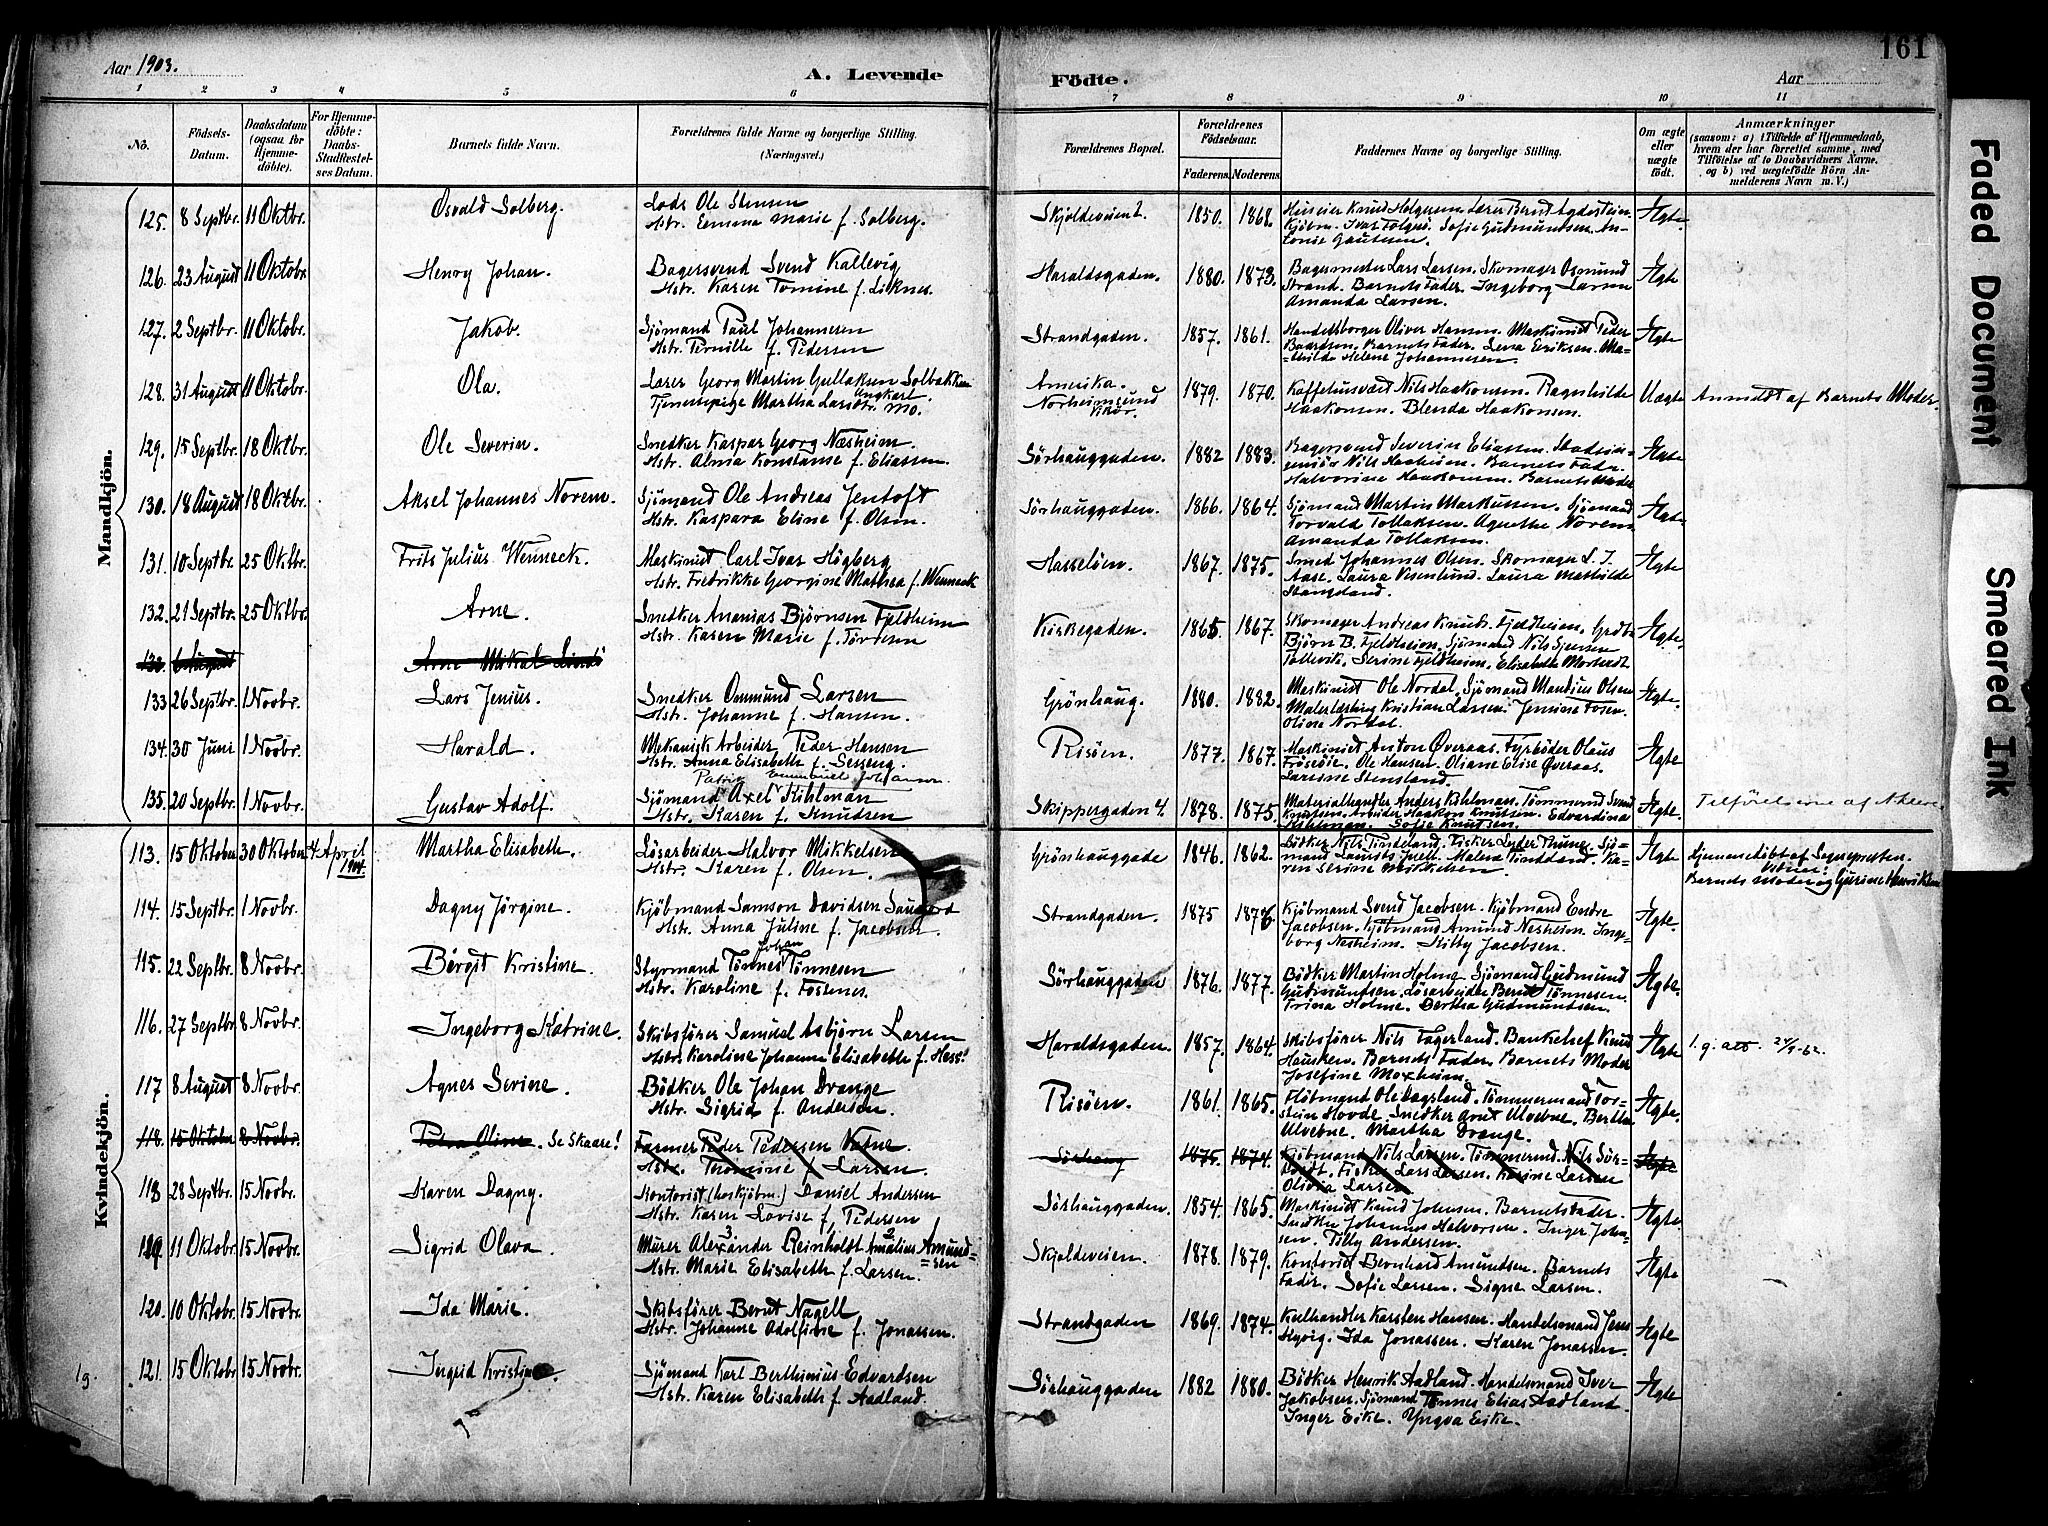 Aar 1903.
A. Levende
Födte.
Aar
161
1 2 3 4 5 6 7 8 9 10 11
No.
Födsels-Datum.
Daabsdatum (ogsaa for Hjemmedöbte).
For Hjemmedöbte: Daabs-Stadfæstelses Datum.
Barnets fulde Navn.
Forældrenes fulde Navne og borgerlige Stilling. (Næringsvei.)
Forældrenes Bopæl.
Forældrenes Födselsaar.
Faderens. Moderens.
Faddernes Navne og borgerlige Stilling.
Om ægte eller uægte födt.
Anmærkninger
(saasom: a) i Tilfælde af Hjemmedaab, hvem der har forrettet samme, med Tilföielse af to Daabsvidners Navne, og b) ved uægtefödte Börn Anmelderens Navn m. V.)
Mandkjön.
125. 8 Septbr. 11 Oktbr. Osvald Solberg. Lods Ole Stensen
Hstr. Emma Marie f. Solberg.
Skjoldeveien 2. 1850. 1868. Ægte.
126. 23 August 11 Oktobr. Henry Johan. Bagersvend Svend Kallevig
Hstr. Karen Tomine f. Liknes.
Haraldsgaden. 1880. 1873. Bagermester Lars Larsen. Skomager Osmund
Strand. Barnets Fader. Ingeborg Larsen
Amanda Larsen. Ægte
127. 2 Septbr. 11 Oktobr. Jakob. Sjömand Paul Johannesen
Hstr. Pernille f. Pedersen
Strandgaden. 1857. 1861. Handelsborger Oliver Hansen. Maskinist Peder
Baardsen. Barnets Fader. Lena Eriksen. Ma-
thilde Helene Johannesen Ægte
128. 31 August 11 Oktobr. Ola. Lærer Georg Martin Gullaksen Solbakken
Ungkarl.
Tjenestepige Martha Larsdtr. Mo.
Amerika.
Norheimsund
1879. 1870. Kaffehusvært Nils Haakonsen. Ragnhilde
Haakonsen. Blenda Haakonsen. Uægte Anmeldt af Barnets Moder.
129. 15 Septbr. 18 Oktbr. Ole Severin. Snedker Kaspar Georg Næsheim.
Hstr. Alma Konstanse f. Eliassen.
Sörhauggaden. 1882 1883. Bagersvend Severin Eliassen.
Halvorine Haakonsen. Barnets Moder Ægte.
130. 18 August 18 Oktbr. Aksel Johannes Norem. Sjömand Ole Andreas Jentoft
Hstr. Kaspara Eline f. Olsen.
Sörhauggaden. 1866. 1864. Sjömand Martin Markussen. Sjömand
Torvald Tollaksen. Agnethe Norem.
Amanda Tollaksen. Ægte
131. 10 Septbr. 25 Oktbr. Frits Julius Wenneck. Maskinist Carl Ivar Högberg
Hstr. Fredrikke Georgine Mathea f. Wenneck
Hasselöen. 1867. 1875. Smed Johannes Olsen. Skomager L. J.
Aase. Laura Vesenlund. Laura Mathilde
Stangeland. Ægte
132. 21 Septbr. 25 Oktbr. Arne. Snedker Ananias Björnsen Fjeldheim
Hstr. Karen Marie f. Tordesen
Kirkegaden. 1865 1867. Skomager Andreas Knuts. Fjeldheim.
Björn B. Fjeldheim. Sjömand Nils Sjursen
Tollevik. Serine Fjeldheim. Elisabeth Mortveit Ægte
133. 6 August Arne Mikal
133 26 Septbr. 1 Novbr. Lars Jenius. Snedker Ommund Larsen
Hstr. Johanne f. Hansen.
Grönhaug. 1880. 1882. Maskinist Ole Nordal. Sjömand Mandius Olsen
Malerlærling Kristian Larsen. Jensine Fosen.
Oline Nordal. Ægte.
134. 30 Juni 1 Novbr. Harald. Mekanisk Arbeider Peder Hansen
Hstr. Anna Elisabeth f.
Risöen. 1877. 1867. Maskinist Anton Överaas. Fyrböder Olaus
Fröseöie. Ole Hansen. Oliane Elise Överaas.
Larsine Stensland. Ægte
135. 20 Septbr. 1 Novbr. Gustav Adolf. Patrik Emmanuel Johansen
Sjömand Axel Kihlman
Hstr. Karen f. Knudsen
Skippergaden 4. 1878. 1875. Materialhandler Anders Kihlman. Tömmermd Svend
Knutsen. Arbeider Haakon Knutsen. Edvardina
Kihlman. Sofie Knutsen. Ægte. Tilföielsene af
Kvindekjön.
113. 15 Oktober 30 Oktober 4 April 1904. Martha Elisabeth. Lösarbeider Halvor Mikkelsen
Hstr. Karen f. Olsen.
Grönhauggade 1846. 1862. Bödker Nils Tindeland. Fisker Peder Thunes. Sjö-
mand Laurits Juell. Malene Tindeland. Ka-
ren Serine Mikkelsen. Ægte Hjemmedöbt af Sognepresten.
Vidner:
Barnets Moder og Gurine Henriksen
114. 15 Septbr. 1 Novbr. Dagny Jörgine. Kjöbmand Samson Davidsen
Hstr. Anna Juline f. Jacobsen.
Strandgaden. 1875 1876. Kjöbmand Svend Jacobsen. Kjöbmand Endre
Jacobsen. Kjöbmand Amund Nesheim. Inge-
borg Nesheim. Kitty Jacobsen. Ægte.
115. 22 Septbr. 8 Novbr. Bergit Kristine. Styrmand Tönnes Johan Tönnesen
Hstr. Karoline f. Fosenes.
Sörhauggaden 1876. 1877. Bödker Martin Holme. Sjömand Gudmund
Gudmundsen. Lösarbeider Bernt Tönnesen.
Trina Holme. Bertha Gudmundsen. Ægte.
116. 27 Septbr. 8 Novbr. Ingeborg Katrine. Skibsförer Samuel Asbjörn Larsen
Hstr. Karoline Johanne Elisabeth f. Hess.
Haraldsgaden. 1857. 1864. Skibsförer Nils Fagerland. Bankchef Knud
Hausken. Barnets Fader. Barnets Moder
Josefine Moxheim. Ægte 1. g. att. 24/9-62.
117 8 August 8 Novbr. Agnes Serine. Bödker Ole Johan Drange
Hstr. Sigrid f. Andersen.
Risöen. 1861. 1865. Flöbmand Ole Dagsland. Tömmermand Tor-
stein Hovde. Snedker Arnt Ulvebne. Bertha
Ulvebne. Martha Drange. Ægte.
118. 15 Oktober 8 Novbr. Petra Oline. Se Skaare! Farmer Peder Pedersen Vatne
Hstr. Thomine f Larsen.
Sörhaug 1875. 1874. Kjöbmand Nils Larsen. Tömmermd. Nils Sör-
tveit. Fisker Lars Larsen. Karine Larsen
Olivia Larsen Ægte
118 28 Septbr. 15 Novbr. Karen Dagny. Kontorist (hos kjöbm.) Daniel Andersen
Hstr. Karen Lovise f. Pedersen
Sörhauggaden. 1854. 1865. Maskinist Knud Johnsen. Barnets Fader.
Snedker Johannes Halvorsen. Inger John-
sen. Tilly Andersen. Ægte.
119 11 Oktobr. 15 Novbr. Sigrid Olava. Murer Alexander Reinholdt Amalius Amund-
sen
Hstr. Marie Elisabeth f. Larsen.
Skjoldeveien. 1878. 1879. Kontorist Bernhard Amundsen. Barnets
Fader. Sofie Larsen. Signe Larsen. Ægte
120. 10 Oktobr. 15 Novbr. Ida Marie. Skibsförer Bernt Nagell
Hstr. Johanne Adolfine f. Jonassen.
Strandgaden 1869. 1874. Kulhandler Karsten Hansen. Handelsmand Jens
Myvig. Ida Jonassen. Karen Jonassen. Ægte
1g. 121. 15 Oktobr 15 Novbr. Ingrid Kristine. Sjömand Karl Berthinius Edvardsen
Hstr. Karen Elisabeth f. Aadland.
Sörhauggaden 1882 1880. Bödker Henrik Aadland. Handelsmand Iver
Jakobsen. Sjömand Tönnes Elias Aadland.
Inger Eike. Yngva Eike. Ægte
Faded Document
Smeared Ink